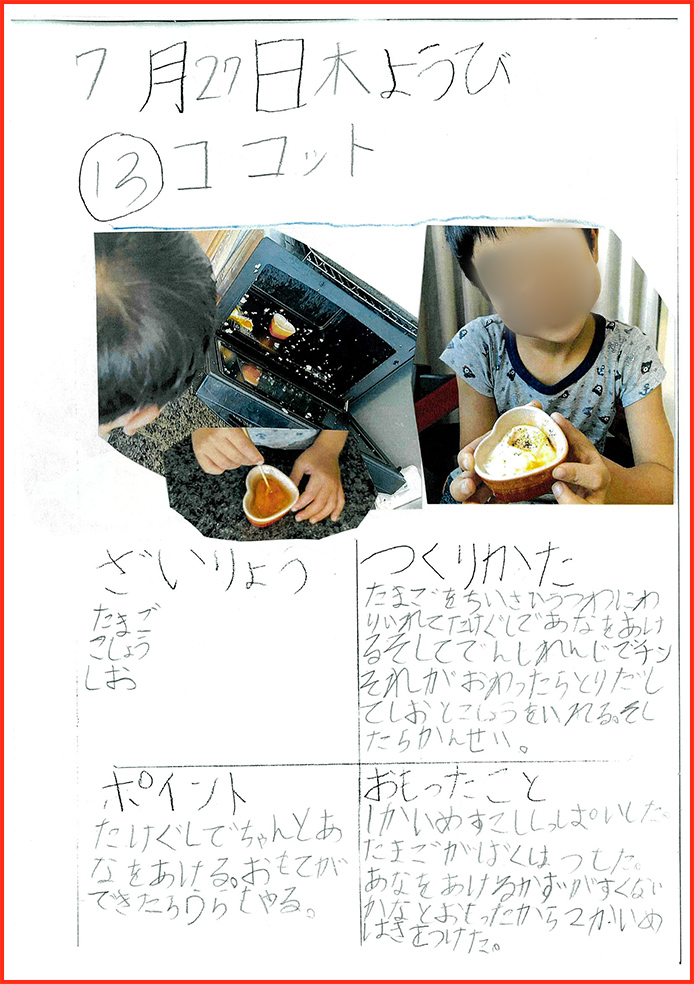 7月27日木ようび
⑬ココット
ざいりょう
たまご
こしょう
しお
つくりかた
たまごをちいさいうつわにわ
りいれてたけぐしであなをあけ
るそしてでんしれんじでチン
それがおわったらとりだし
てしおとこしょうをいれる。そし
たらかんせい。
ポイント
たけぐしでちゃんとあ
なをあける。おもてが
できたらうらもやる。
おもったこと
1かいめすこししっぱいした。
たまごがばくはつした。
あなをあけるかずがすくない
かなとおもったから2かいめ
はきをつけた。